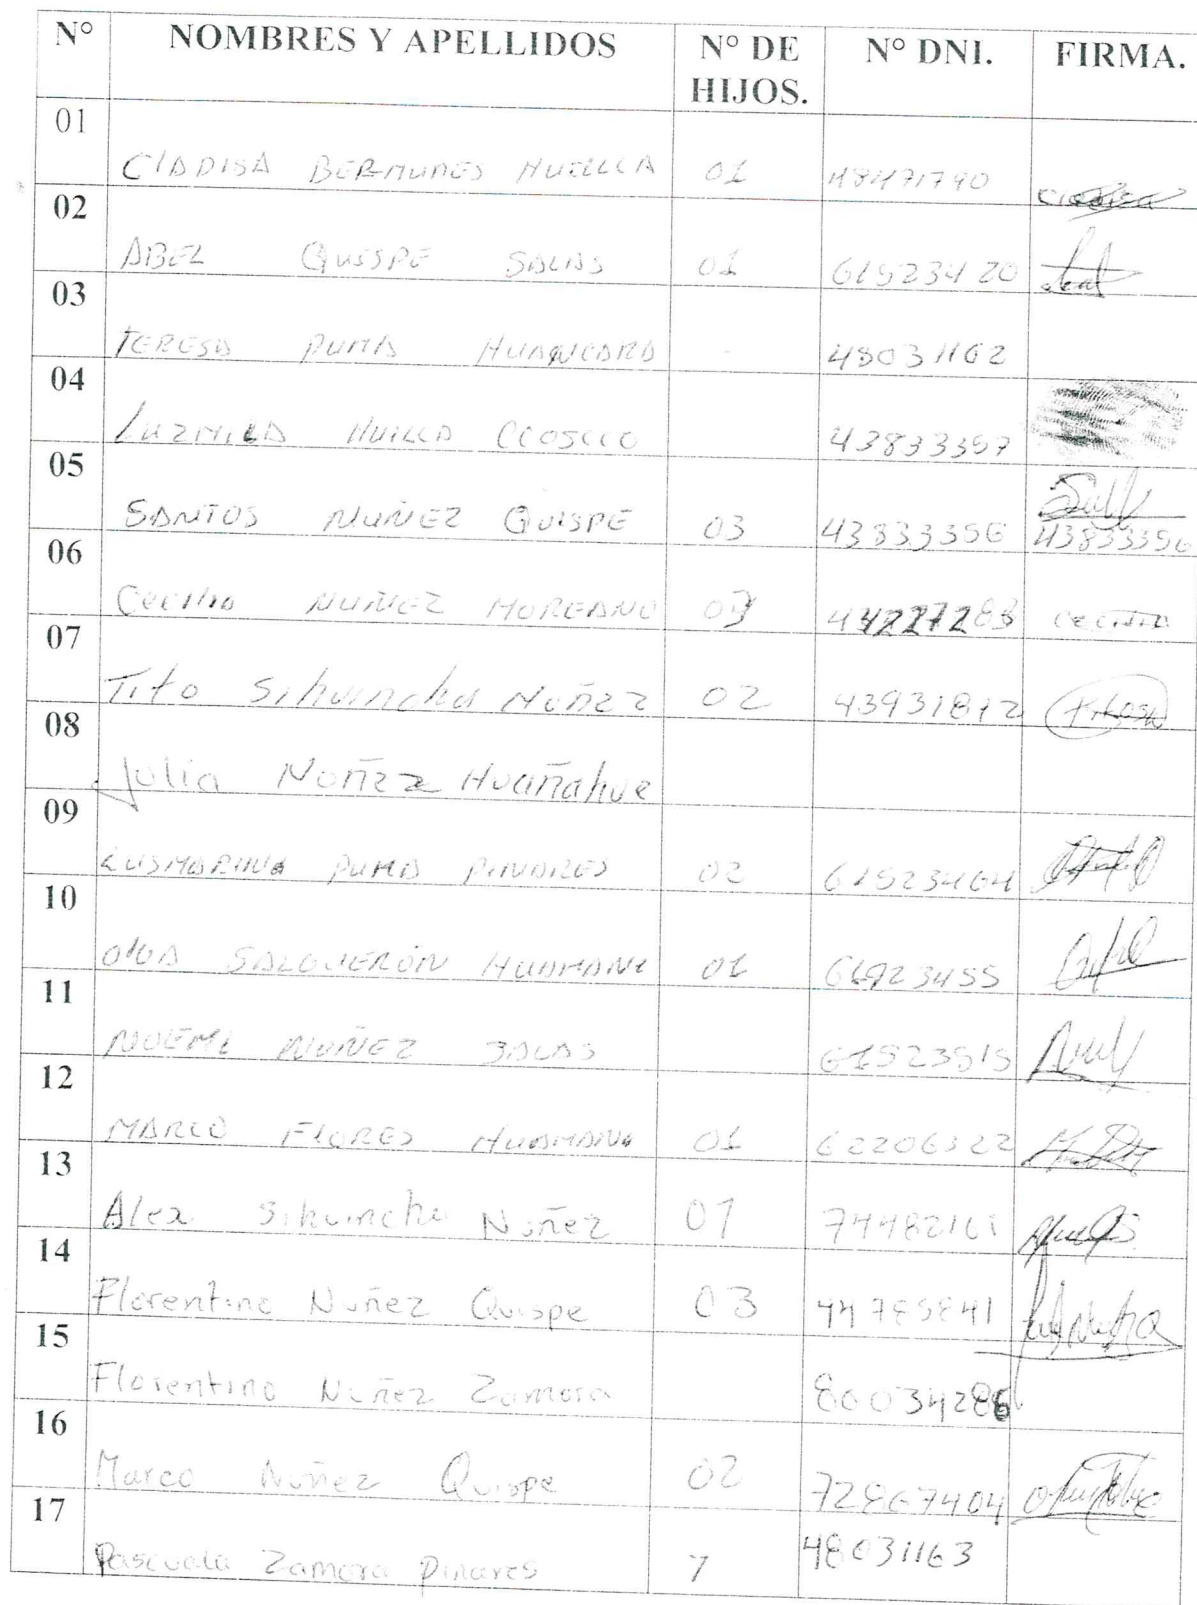 N° NOMBRES Y APELLIDOS N° DE HIJOS. N° DNI. FIRMA.
01 CLADISA BERMUNES HUILLCA 01 48471790
02 ABEL QUISPE SALAS 01 61523420
03 TERESA PUMA HUANCARA - 48031162
04 LUZMILA HUILLCA CCOSCCO 43833357
05 SANTOS NUÑEZ QUISPE 03 43833356 43833356
06 Cecilia NUÑEZ MOREANO 44227283 CECILIA
07 Tito Sihuincha Nuñez 02 43931812
08 Julia Nuñez Huañahue
09 LUSMARINA PUMA PINARES 02 61523464
10 SALGUERON HUAMANI 01
11 NOEMI NUÑEZ SALAS 61523515
12 MARCO FLORES HUAMANI 01 62206322
13 Alex Sihuincha Nuñez 01 74482161
14 Florentino Nuñez Quispe 03 44785841
15 Florentino Nuñez Zamora 80034286
16 Marco Nuñez Quispe 02 72867404
17 Pascuala Zamora Pinares 7 48031163